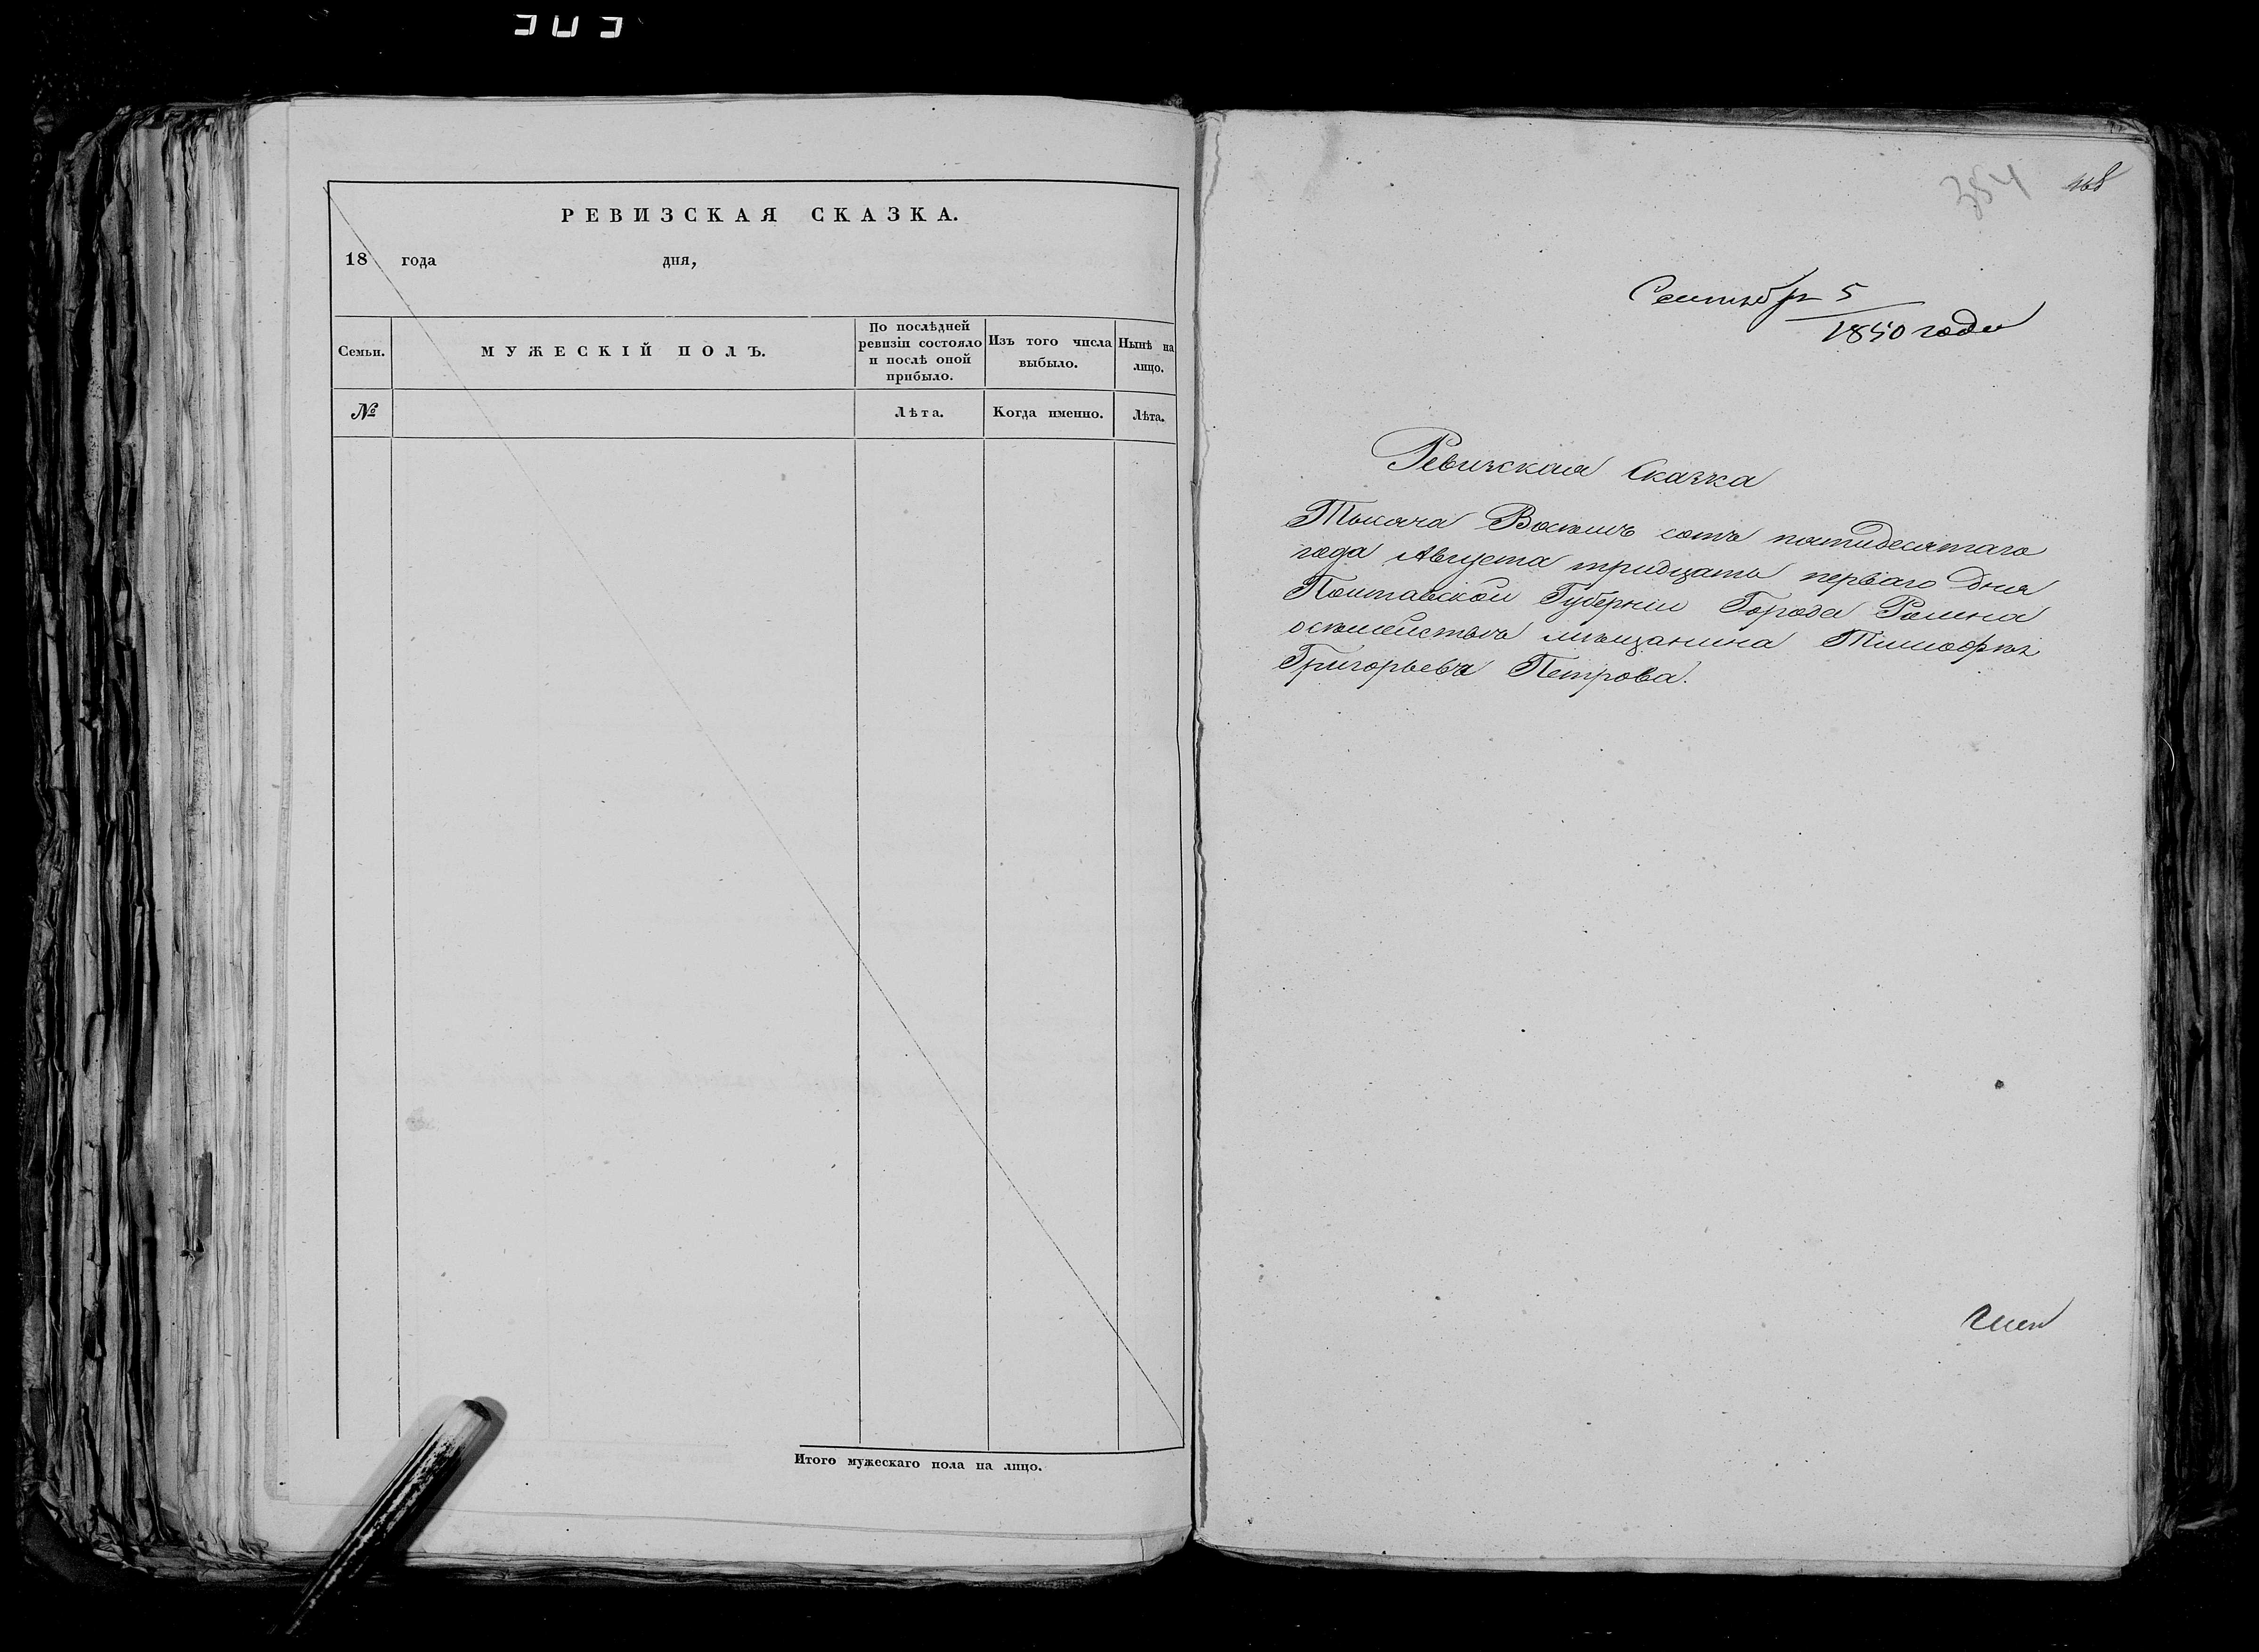 РЕВИЗСКАЯ СКАЗКА.
18 года дня,
Семьи.
МУЖЕСКІЙ ПОЛЪ.
По послѣдней
ревизіи состояло
и послѣ оной
прибыло.
Изъ того числа
выбыло.
Нынѣ на
лицо.
№
Лѣта.
Когда именно.
Лѣта.
Итого мужескаго пола на лицо.
354 168
Сентябр 5
1850 года
Ревизская Сказка
Тысяча Восемь сотъ пятидесятаго
года Августа тридцать перваго дня
Полтавской Губерніи Города Ромна
мѣщанина Тимофея
Григорьева Петрова.